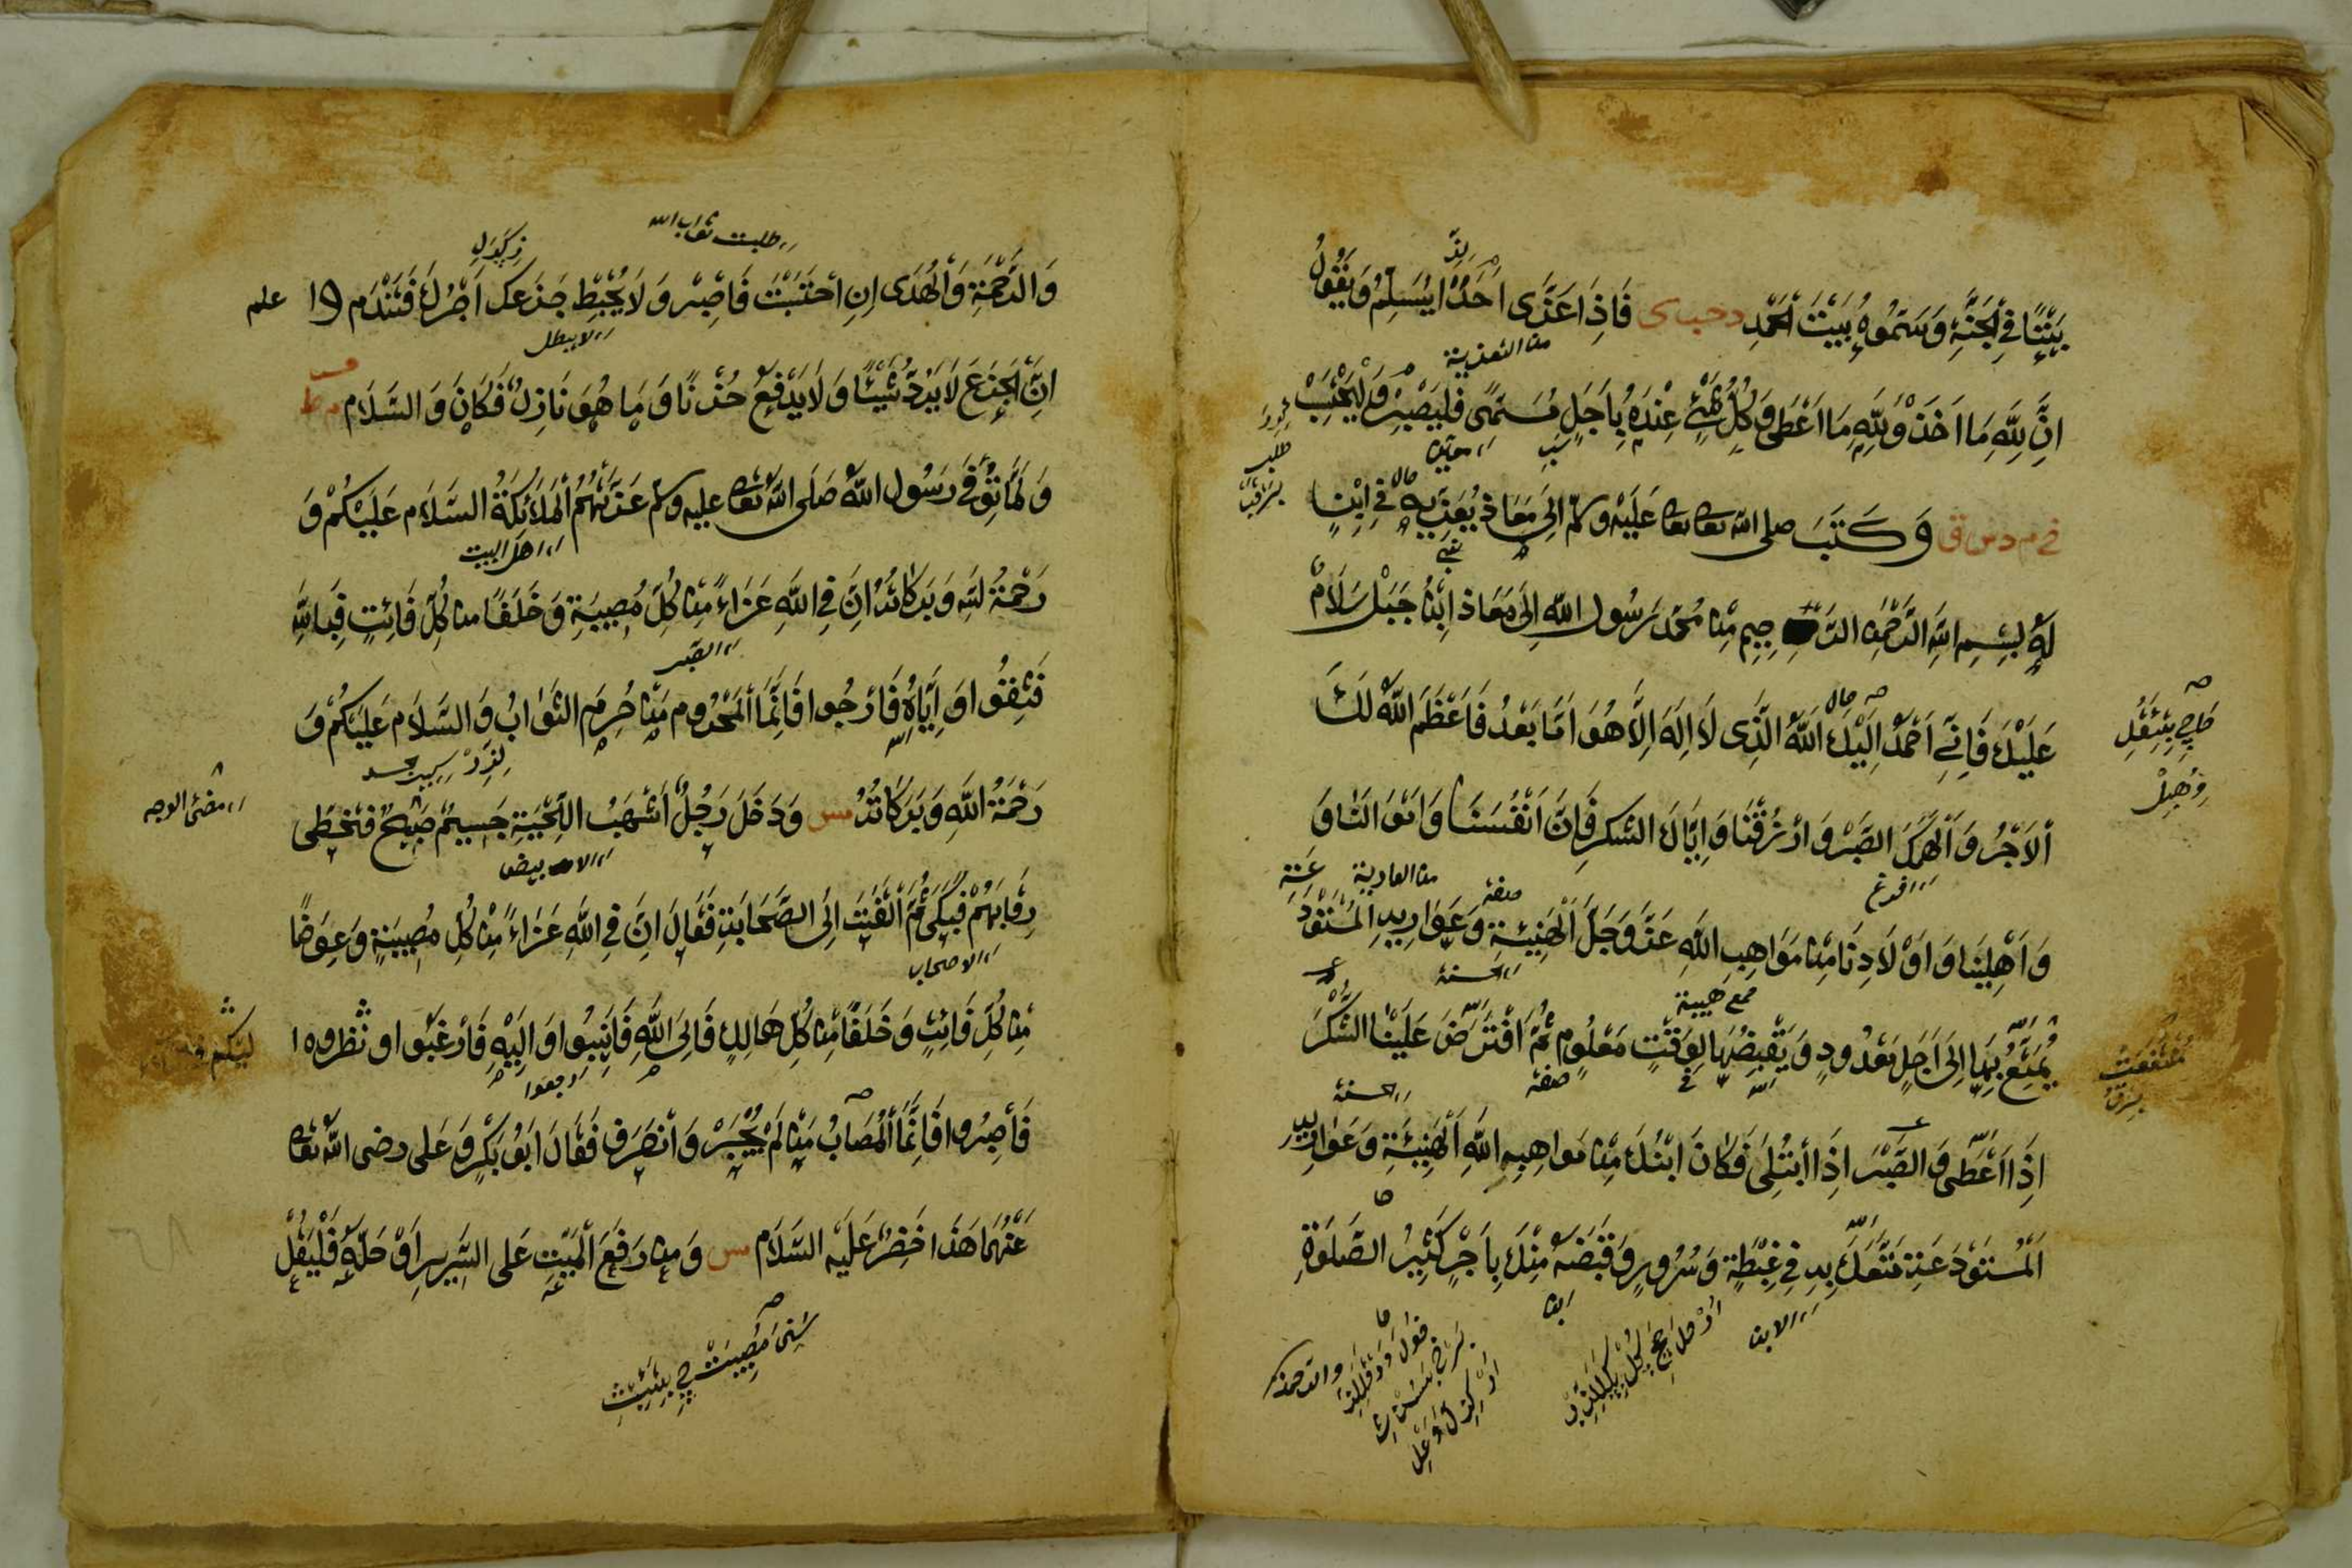 بَيْتًا فِي الْجَنَّةِ وَسَمُّوهُ بَيْتَ الْحَمْدِ د حب ى فَاِذَا عَزَّى اَحَدًا يُسَلِّمُ وَيَقُولُ
من التعزية
اِنَّ لِلّٰهِ مَا اَخَذَ وَلِلّٰهِ مَا اَعْطَى وَكُلُّ شَيْءٍ عِنْدَهُ بِاَجَلٍ مُسَمًّى فَلْيَصْبِرْ وَلْيَحْتَسِبْ
خ م د س ق وَكَتَبَ صلى الله تعالى عَلَيْهِ وسلم اِلَى مَعَاذ يُعَزِّيهِ فِي اِبْنٍ
لَهُ بِسْمِ اللهِ الرَّحْمٰنِ الرَّحِيمِ مِنْ مُحَمَّد رَسُول الله اِلَى مَعَاذ اِبْنِ جَبَل سَلَامٌ
عَلَيْكَ فَاِنِّي اَحْمَدُ اِلَيْكَ اللّٰهَ الَّذِى لَا اِلَهَ اِلَّا هُوَ اَمَّا بَعْدُ فَاَعْظَمَ اللّٰهُ لَكَ
اَلْاَجْرُ وَاَلْهَمَكَ الصَّبْرَ وَارْزُقْنَا وَاِيَّاكَ الشكر فَاِنَّ اَنْفُسَنَا وَاَمْوَالَنَا وَ
من العارية
صفة
وَاَهْلِينَا وَاَوْلَادِنَا مِنْ مَوَاهِبِ اللّٰهِ عَزَّ وَجَلَّ الْهَنِيئَةِ وَعَوَارِيهِ الْمُسْتَوْدَعَة
الحسنة
يُمَتِّعُ بِهَا اِلَى اَجَلٍ مَعْدُودٍ وَيَقْبِضُهَا لِوَقْتٍ مَعْلُومٍ ثُمَّ افْتَرَضَ عَلَيْنَا الشُّكْرَ
صفة
الحسنة
اِذَا اَعْطَى وَالصَّبْرَ اِذَا ابْتُلِىَ فَكَانَ ابْنُكَ مِنْ مَوَاهِبِهِ اللّٰهِ الْهَنِيئَةِ وَعَوَارِيهِ
اَلْمُسْتَوْدَعَةِ مَتَّعَكَ بِهِ فِي غِبْطَةٍ وَسُرُورٍ وَقَبَضَهُ مِنْكَ بِاَجْرٍ كَثِيرٍ الصَّلَوٰةِ
الابن
والرحمة
طلبت ثواب الله
وَالرَّحْمَةِ وَالْهُدَى اِنِ احْتَسَبْتَ فَاصْبِرْ وَلَا يُحْبِطْ جَزَعك اَجْرُكَ فَتَنْدَم وا علم
لا يبطل
اِنَّ الْجَزَعَ لَا يَرُدُّ شَيْئًا وَلَا يَدْفَعُ حُزْنًا وَمَا هُوَ نَازِلٌ فَكَانَ وَالسَّلَام مس ط
وَلَمَّا تُوُفِّيَ رَسُول اللهُ صَلَى اللهُ تعالى عليه وسلم عَزَّتْهُمُ الْمَلَائِكَةُ السَّلَام عَلَيْكُمْ وَ
اهل البيت
رَحْمَةُ اللهِ وَبَرَكَاتُهُ اِنَّ فِي اللَّهِ عَزَاءً مِنْ كُلِّ مُصِيبَةٍ وَخَلَفًا من كُلِّ فَائِتٍ فَبِاللَّهِ
الصبر
فَثِقُوا وَاِيَّاهُ فَارْجُوا فَاِنَّمَا الْمَحْرُوم مَنْ حُرِمَ الثَّوَابُ وَالسَّلَام عَلَيْكُمْ وَ
رَحْمَةُ اللَّهِ وَبَرَكَاتُهُ مس وَدَخَلَ رَجُلٌ اَشْهَبُ اللِّحْيَةِ جَسِيمٌ صَبِيحٌ فتخطى
مضئ الوجه
رِقَابَهُمْ فَبَكَى ثُمَّ الْتَفَتَ اِلَى الصَّحَابَةِ فَقَالَ اِنَّ فِي اللَّهِ عَزَاءً مِنْ كُلِّ مُصِيبَةٍ وَعِوَضًا
الاصحاب
مِنْ كُلِّ فَائِتٍ وَخَلَفًا مِنْ كُلِّ هَالِكٍ فَاِلَى اللَّهِ فَاَنِيبُوا وَاِلَيْهِ فَارْغَبُوا و نظروه ا
ارجعوا
فَاصْبِرُوا فَاِنَّمَا الْمُصَابُ مَنْ لَمْ يُجْبَرْ وَانْصَرَفَ فَقَالَ اَبُو بَكْرٍ وَعَلى رضى الله تعالى
عَنْهُمَا هَذَا خَضِرُ عَلَيْهِ السَّلَام مس وَمِن رَفَعَ الْمَيِّتِ عَلى السَّرِيرِ اَوْ حَمَلَهُ فَلْيَقُلْ